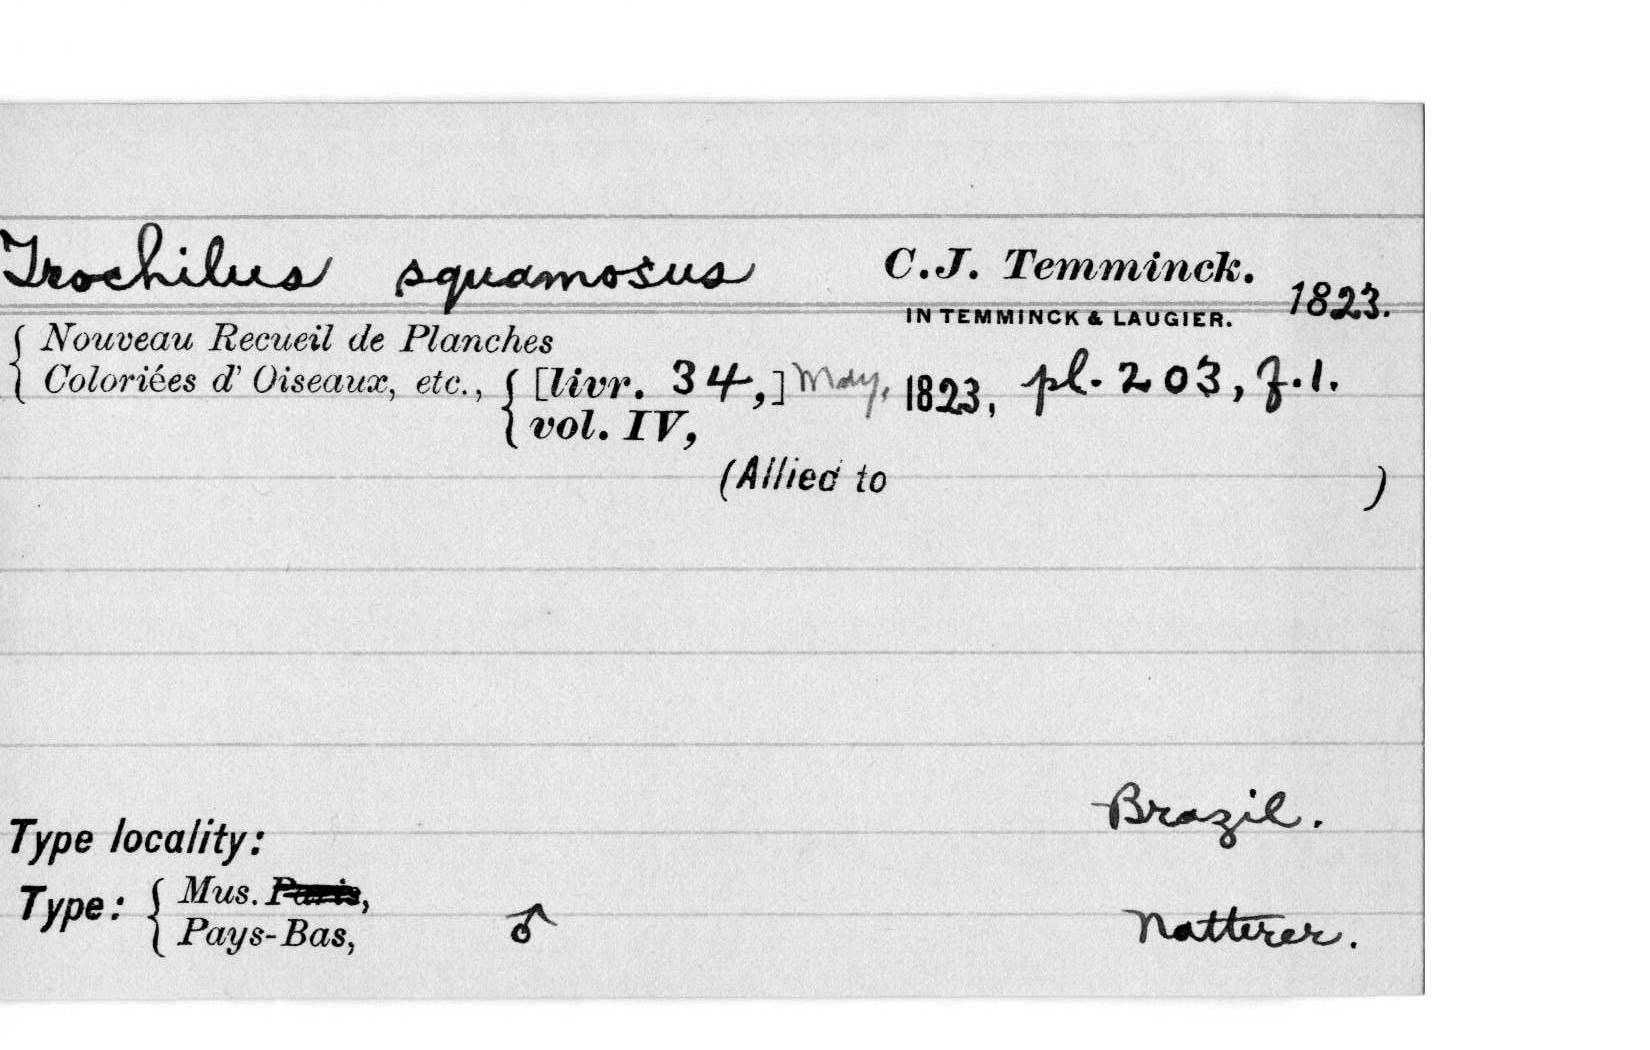 Trochilus squamosus C.J. Temminck.
IN TEMMINCK & LAUGIER. 1823.
Nouveau Recueil de Planches
Coloriées d' Oiseaux, etc., [livr. 34,] May, 1823, pl. 203, f. 1.
vol. IV,
(Allied to )
Brazil.
Type locality:
Type: Mus. Paris,
Pays-Bas, ♂ Natterer.